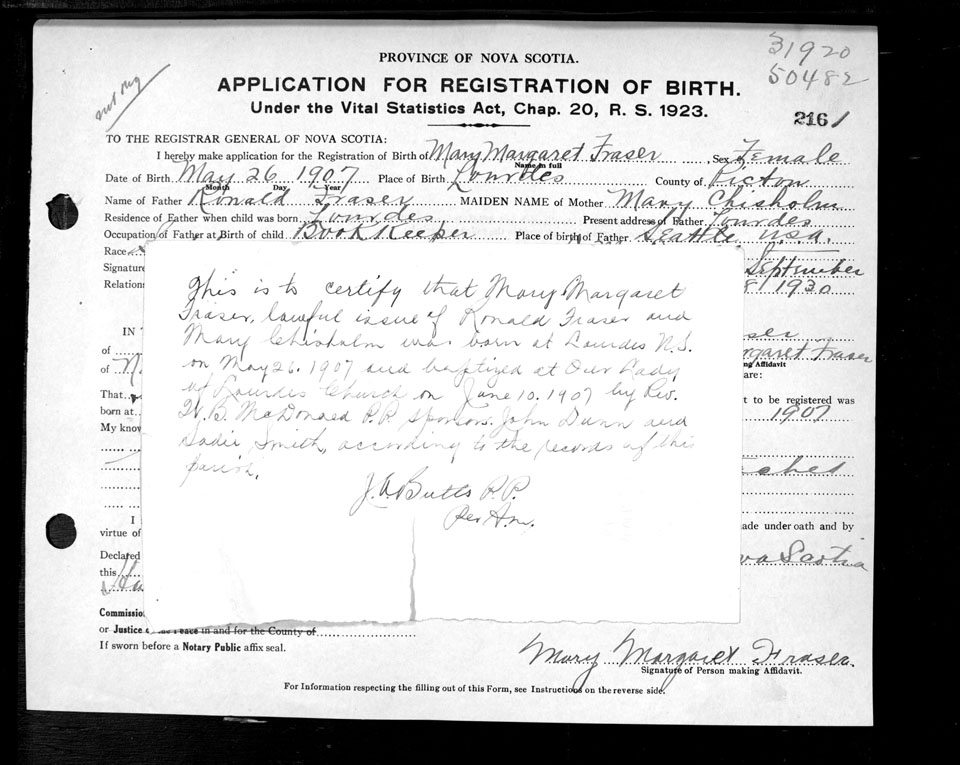 31920
50482
PROVINCE OF NOVA SCOTIA.
APPLICATION FOR REGISTRATION OF BIRTH.
Under the Vital Statistics Act, Chap. 20, R. S. 1923.
2161
TO THE REGISTRAR GENERAL OF NOVA SCOTIA:
I hereby make application for the Registration of Birth of Mary Margaret Fraser Sex Female
Name in full
Date of Birth May 26 1907 Place of Birth Lourdes County of Pictou
Month Day Year
Name of Father Ronald Fraser MAIDEN NAME of Mother Mary Chisholm
Residence of Father when child was born Lourdes Present address of Father Lourdes
Occupation of Father at Birth of child Book Keeper Place of birth of Father Seattle U.S.A.
Race
Signature September
Relation 1930
This is to certify that Mary Margaret
Fraser, lawful issue of Ronald Fraser and
Mary Chisholm was born at Lourdes N.S.
on May 26. 1907 and baptized at Our Lady
of Lourdes Church on June 10. 1907 by Rev.
W. B. McDonald P.P. sponsors John Dunn and
Sadie Smith, according to the records of this
parish.
J. A. Butts P.P.
Per
IN
of rgaret Fraser
ng Affidavit
of are:
That t to be registered was
born at 1907
My know
I ade under oath and by
virtue of
Declared va Scotia
this
Commissio
or Justice Peace in and for the County of
If sworn before a Notary Public affix seal.
Mary Margaret Fraser.
Signature of Person making Affidavit.
For Information respecting the filling out of this Form, see Instructions on the reverse side.